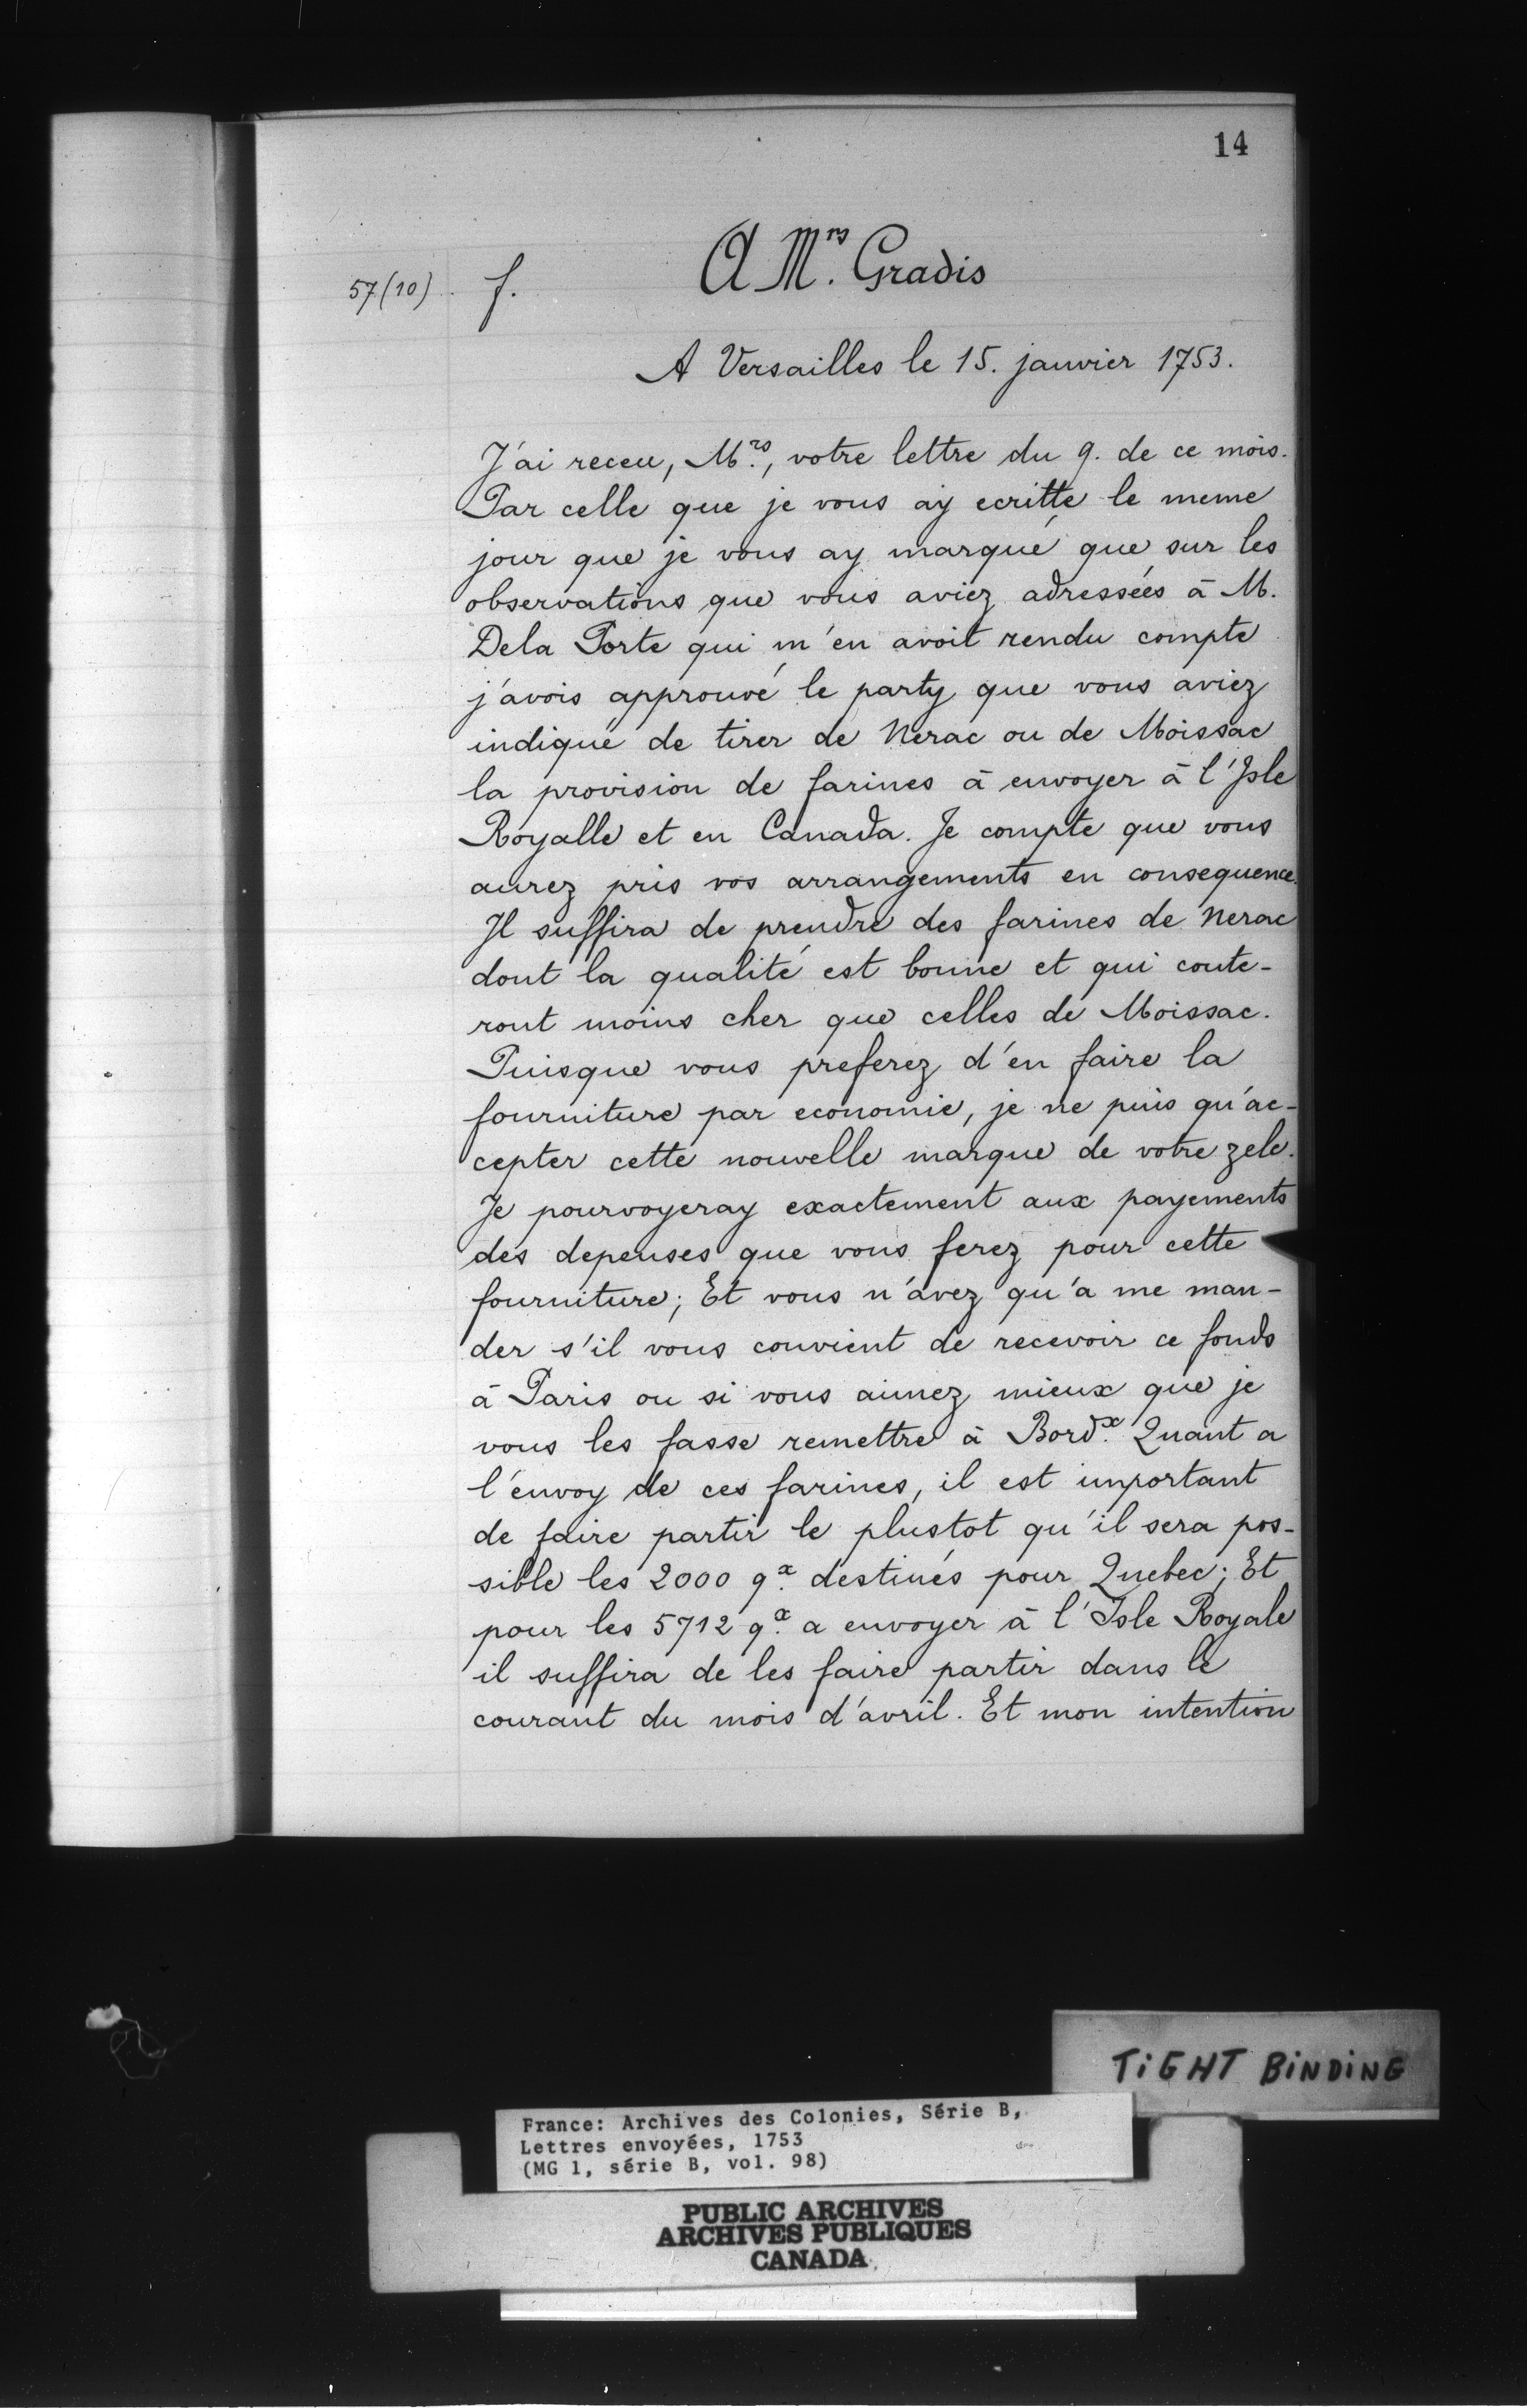 14
A M.rs Gradis
57 (10) f.
A Versailles le 15. janvier 1753.
J'ai receu, M.rs, votre lettre du 9. de ce mois.
Par celle que je vous ay ecritte le meme
jour que je vous ay marqué que sur les
observations que vous aviez adressées à M.
Dela Porte qui m'en avoit rendu compte
j'avois approuvé le party que vous aviez
indiqué de tirer de Nerac ou de Moissac
la provision de farines à envoyer à l'Isle
Royalle et en Canada. Je compte que vous
aurez pris vos arrangements en consequence.
Il suffira de prendre des farines de Nerac
dont la qualité est bonne et qui coute-
ront moins cher que celles de Moissac.
Puisque vous preferez d'en faire la
fourniture par economie, je ne puis qu'ac-
cepter cette nouvelle marque de votre zele.
Je pourvoyeray exactement aux payements
des depenses que vous ferez pour cette
fourniture; Et vous n'avez qu'a me man-
der s'il vous convient de recevoir ce fonds
à Paris ou si vous aimez mieux que je
vous les fasse remettre à Bord.x Quant a
l'envoy de ces farines, il est important
de faire partir le plustot qu'il sera pos-
sible les 2000 q.x destinés pour Quebec; Et
pour les 5712 q.x a envoyer à l'Isle Royale
il suffira de les faire partir dans le
courant du mois d'avril. Et mon intention
TiGHT BiNDiNG
France: Archives des Colonies, Série B,
Lettres envoyées, 1753
(MG 1, série B, vol. 98)
PUBLIC ARCHIVES
ARCHIVES PUBLIQUES
CANADA